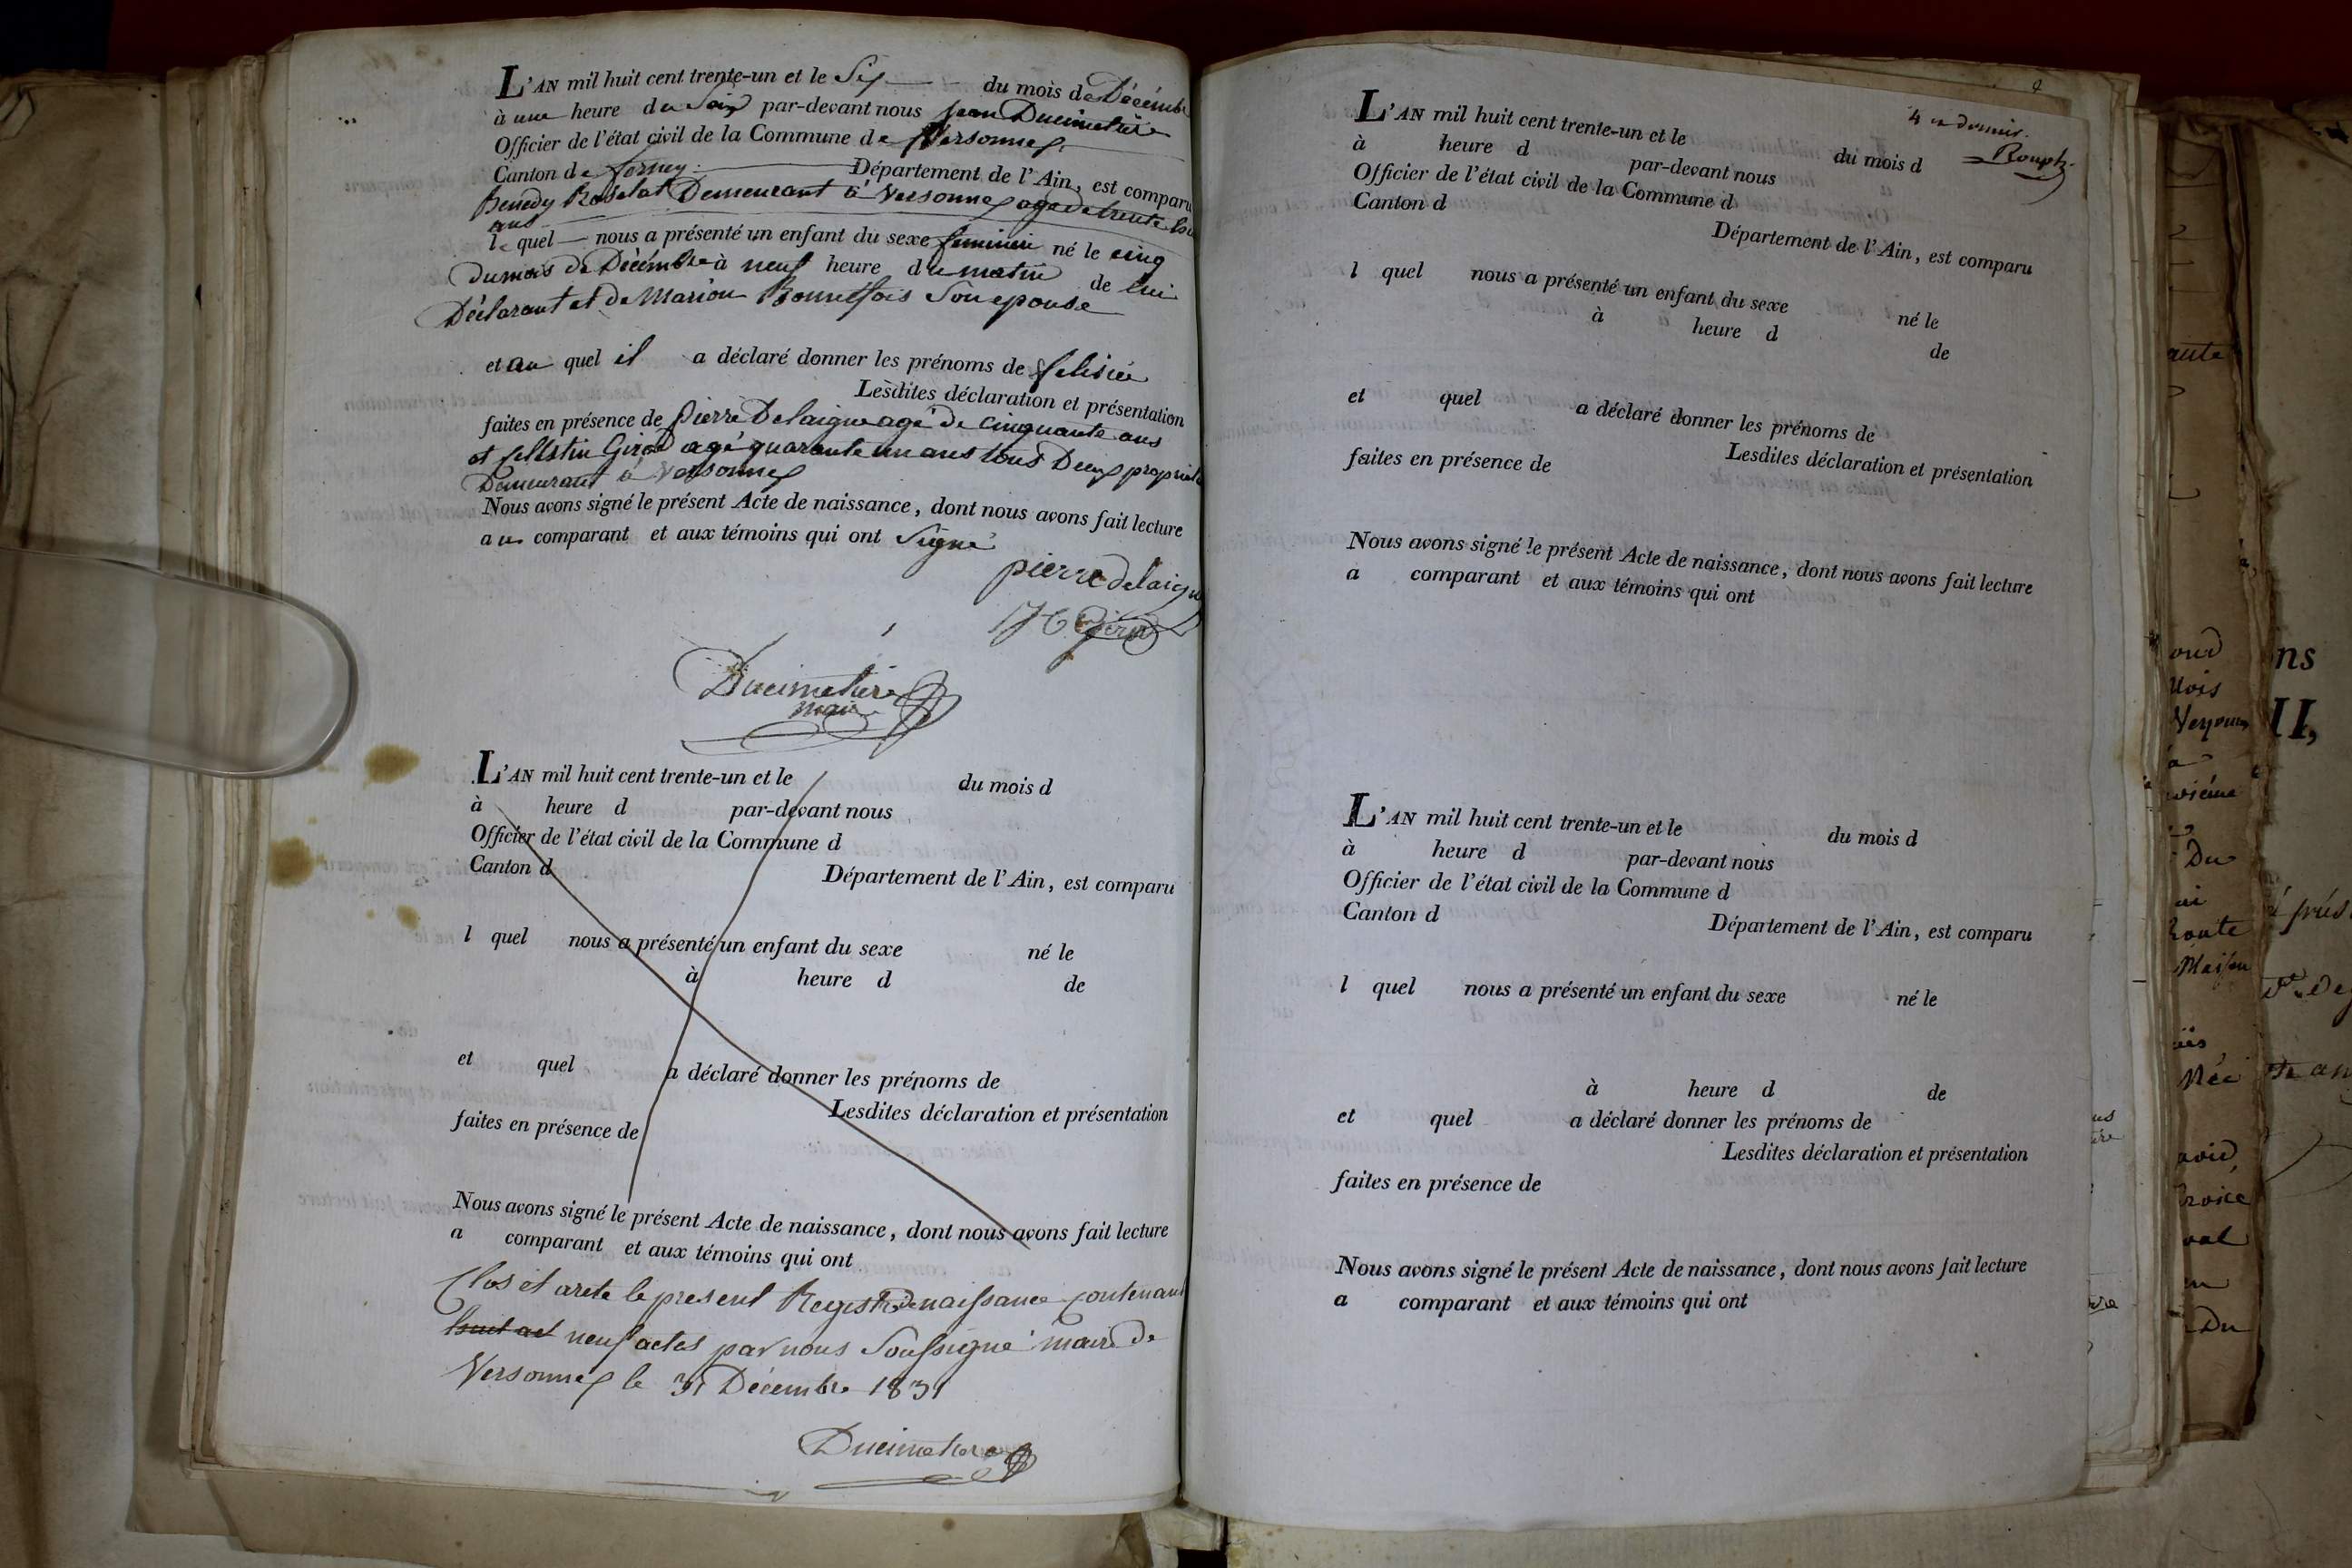 L'AN mil huit cent trente-un et le Six du mois de Décembre
à une heure du Soir par-devant nous jean Ducimetière
Officier de l'état civil de la Commune de Versonnex
Canton de ferney Département de l'Ain, est comparu
Benedy Roselat Demeurant à Versonnex age de trente
ans
le quel nous a présenté un enfant du sexe feminin né le cinq
du mois de Décémbre à neuf heure du matin de lui
Déclarant et de Marion Bonnetfois Son epouse
et au quel il a déclaré donner les prénoms de felisie
Lesdites déclaration et présentation
faites en présence de pierre Delaigue agé de Cinquante ans
et sellstin Girod agé quarante un ans tous Deux
Demeurant à Versonnex
Nous avons signé le présent Acte de naissance, dont nous avons fait lecture
au comparant et aux témoins qui ont Signé
pierre delaigue
Ducimetiere
maire
L'AN mil huit cent trente-un et le du mois d
à heure d par-devant nous
Officier de l'état civil de la Commune d
Canton d Département de l'Ain, est comparu
l quel nous a présenté un enfant du sexe né le
à heure d de
et quel a déclaré donner les prénoms de
Lesdites déclaration et présentation
faites en présence de
Nous avons signé le présent Acte de naissance, dont nous avons fait lecture
a comparant et aux témoins qui ont
Clos et areté le present Registre de naissance contenant
huit act neuf actes par nous Soussigné maire de
Versonnex le 31 Décembre 1831
Ducimetiere
4 et dernier.
L'AN mil huit cent trente-un et le du mois d
à heure d par-devant nous
Officier de l'état civil de la Commune d
Canton d Département de l'Ain, est comparu
l quel nous a présenté un enfant du sexe né le
à heure d de
et quel a déclaré donner les prénoms de
Lesdites déclaration et présentation
faites en présence de
Nous avons signé le présent Acte de naissance, dont nous avons fait lecture
a comparant et aux témoins qui ont
L'AN mil huit cent trente-un et le du mois d
à heure d par-devant nous
Officier de l'état civil de la Commune d
Canton d Département de l'Ain, est comparu
l quel nous a présenté un enfant du sexe né le
à heure d de
et quel a déclaré donner les prénoms de
Lesdites déclaration et présentation
faites en présence de
Nous avons signé le présent Acte de naissance, dont nous avons fait lecture
a comparant et aux témoins qui ont